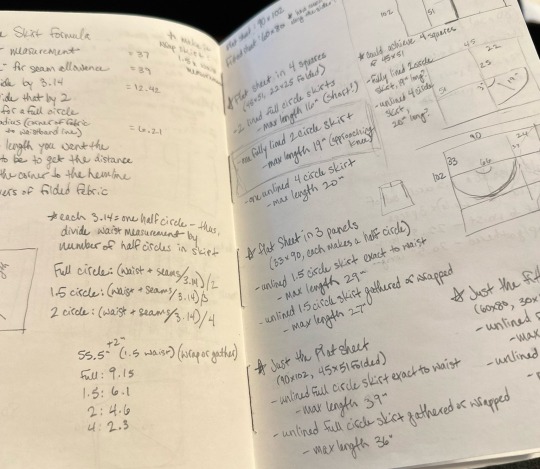 Skirt Formula
measurement = 37
for seam allowance = 39
by 3.14 = 12.42
that by 2
for a full circle
(corner of fabric
to waistband line) = 6.21
length you want the
to be to get the distance
the corner to the hemline
of folded fabric
*each 3.14 = one half circle - thus,
divide waist measurement by
number of half circles in skirt
Full circle: (waist + seams/3.14)/2
1.5 circle: (waist + seams/3.14)/3
2 circle: (waist + seams/3.14)/4
55.5 +2" (1.5 waist) (wrap or gather)
Full: 9.15
1.5: 6.1
2: 4.6
4: 2.3
Flat sheet: 90x102
Flat sheet in 4 squares
(45x51, 22x25 folded)
-2 lined full circle skirts
- max length 16" (short!)
-one fully lined 2 circle skirt
- max length 19" (approaching
knee)
-one unlined 4 circle skirt
- max length 20"
*could achieve 4 squares
@ 45x51
-fully lined 2 circle
skirt, 19" long
-unlined 4 circle
skirt,
20" long
102
51
45
22
90
24
33
66
102
Flat Sheet in 3 panels
(33x90, each makes a half circle)
-unlined 1.5 circle skirt exact to waist
- max length 29"
-unlined 1.5 circle skirt gathered or wrapped
- max length 27"
Just the Flat Sheet
(90x102, 45x51 folded)
-unlined full circle skirt exact to waist
- max length 39"
-unlined full circle skirt gathered or wrapped
- max length 36"
Just the
(60x80, 30x
-unlined
- max
-unlined